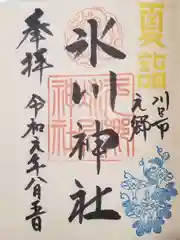 夏詣
川口市
元郷
氷川神社
奉拝
令和元年八月五日